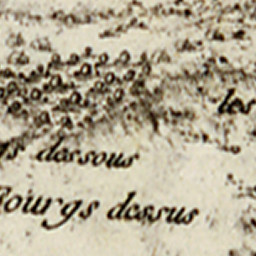 les
dessous
Bourgs dessus